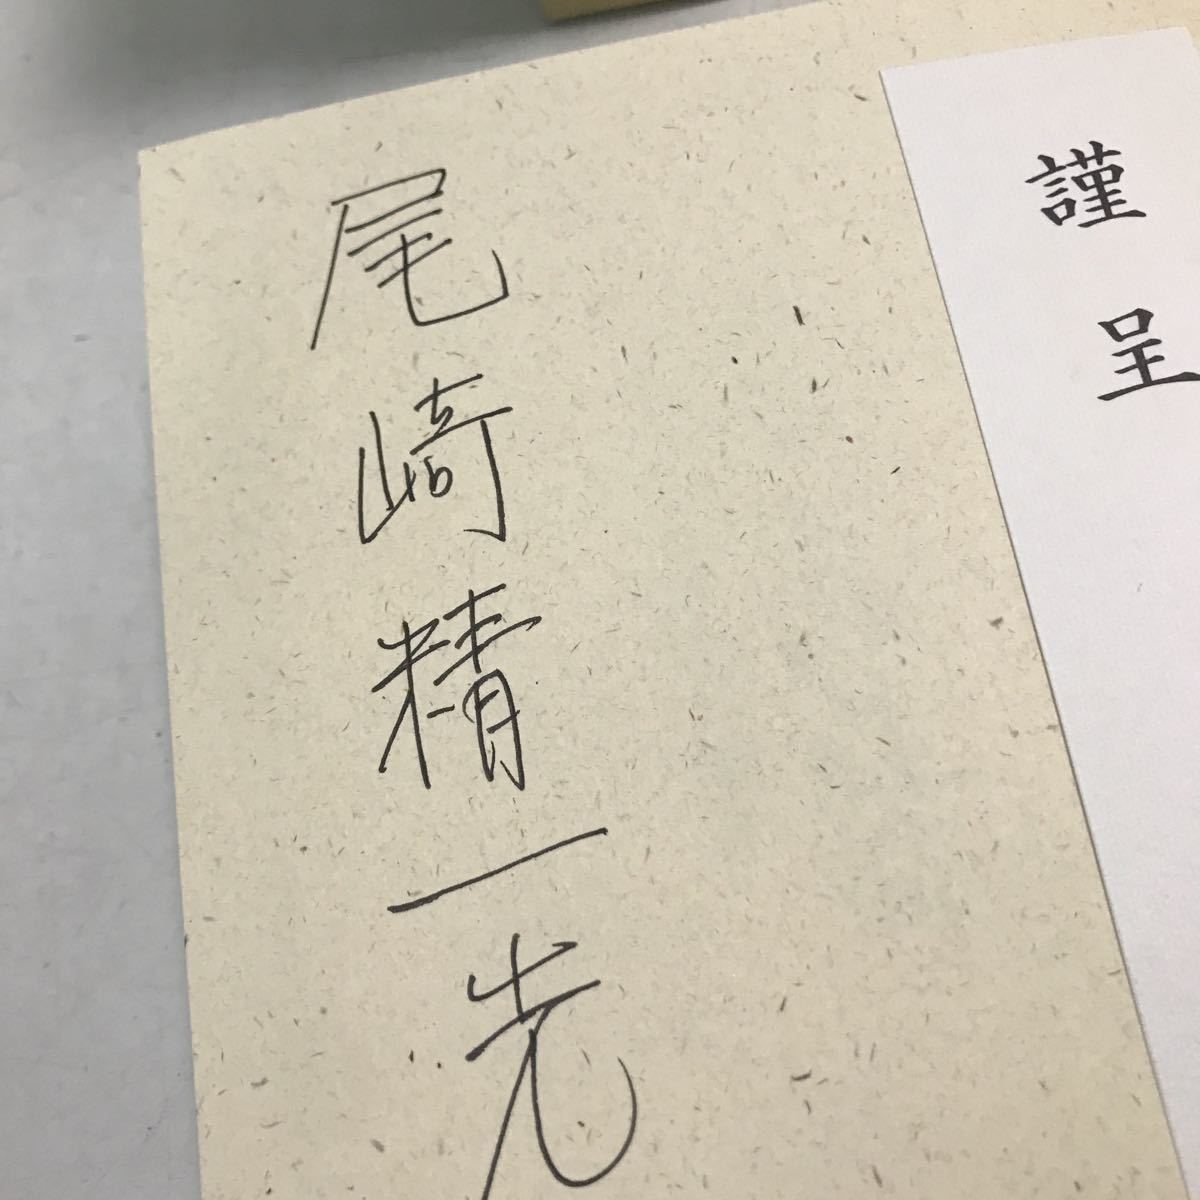 謹呈
尾崎精一先